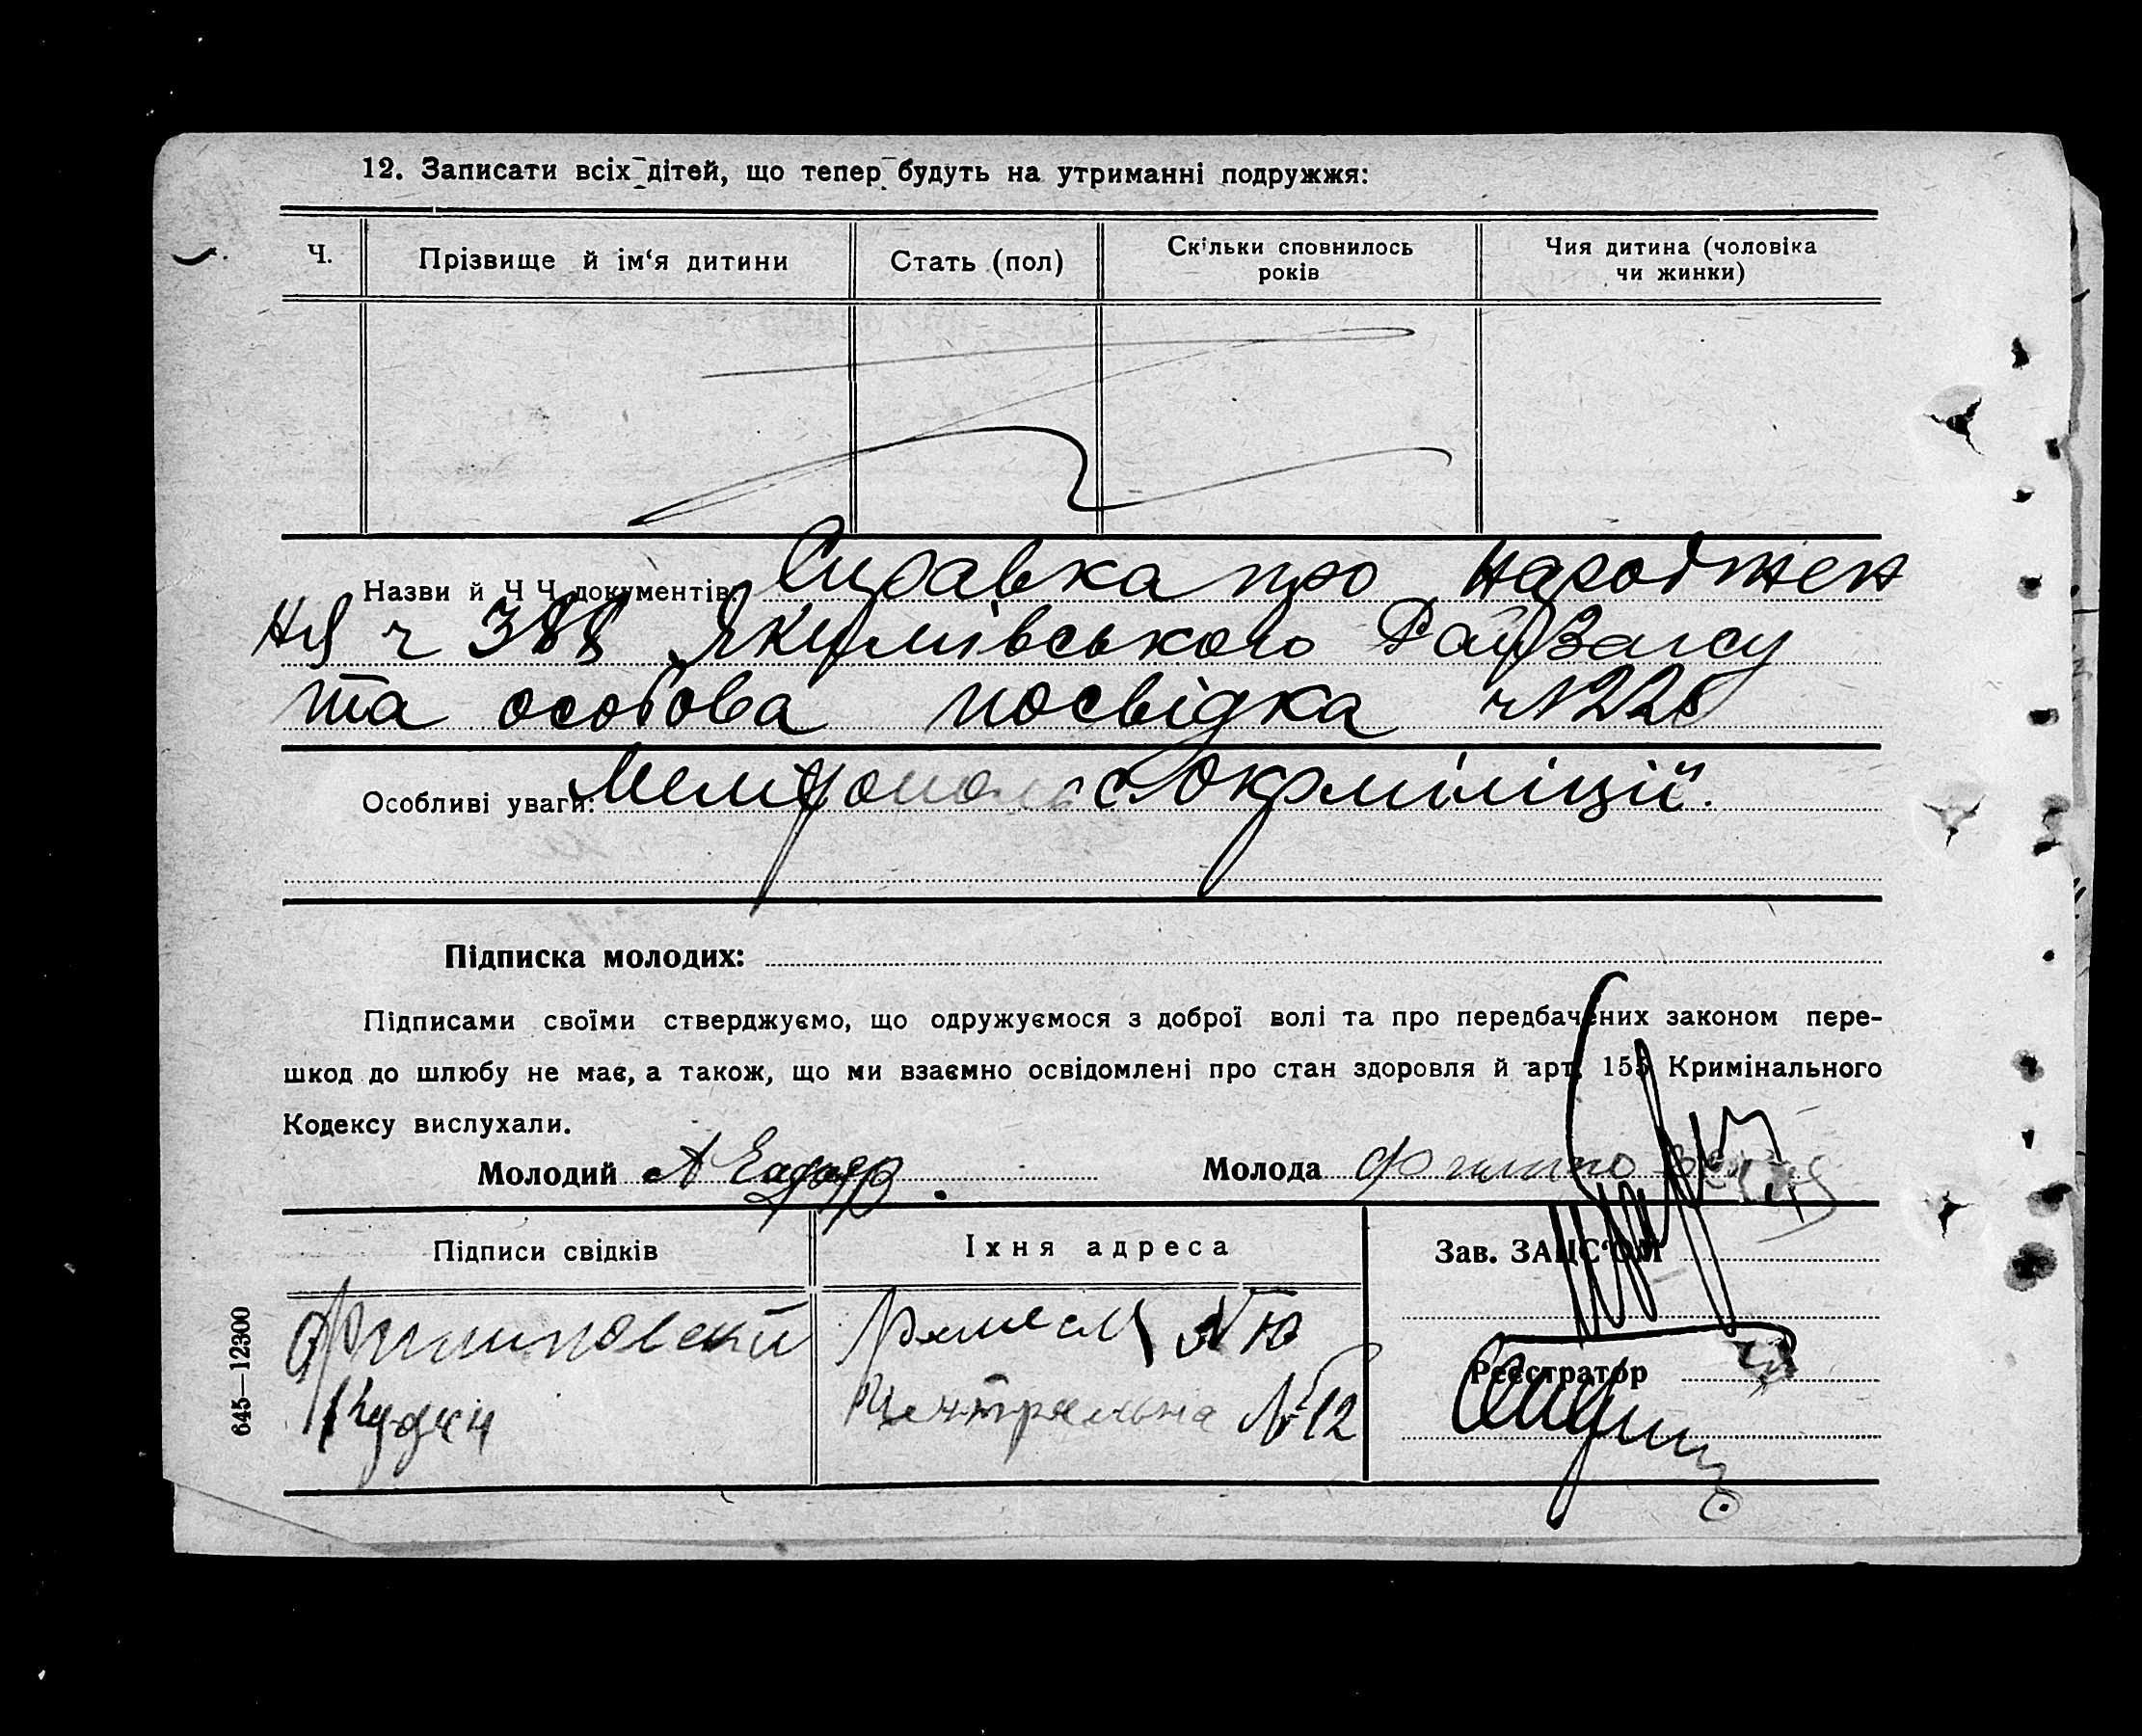 12. Записати всіх дітей, що тепер будуть на утриманні подружжя:
Ч.
Прізвище й ім‘я дитини
Стать (пол)
Скільки сповнилось років
Чия дитина (чоловіка чи жинки)
Назви й Ч Ч документів: Справка про народжен
ня ч 388 Якумівського РайЗагсу
та особова посвідка ч № 225
Особливі уваги: Мелітопольс Окрміліції.
Підписка молодих:
Підписами своїми стверджуємо, що одружуємося з доброї волі та про передбачених законом пере-
шкод до шлюбу не має, а також, що ми взаємно освідомлені про стан здоровля й арт. 155 Кримінального
Кодексу вислухали.
Молодий
Молода
Підписи свідків
Їхня адреса
Зав. ЗАЦС‘ОМ
Филиповский
№ 10
Реєстратор
Центральна № 12
645—12300